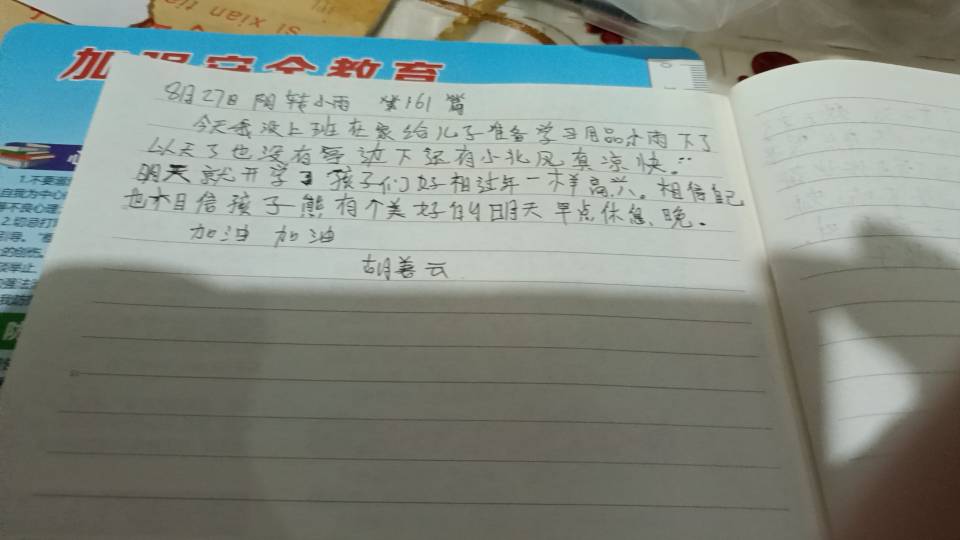 si xian
加强安全教育
8月27日 阴转小雨 第161篇
今天我没上班在家给儿子准备学习用品小雨下了
以天了也没有 边下还有小北风真凉快::
明天就开学了孩子们好相过年一样高兴。相信自己
也相信孩子熊有个美好的明天早点休息、晚。
加油 加油
胡善云
1.不要溺
自我为中心
不良心理
2.切忌打
引导。